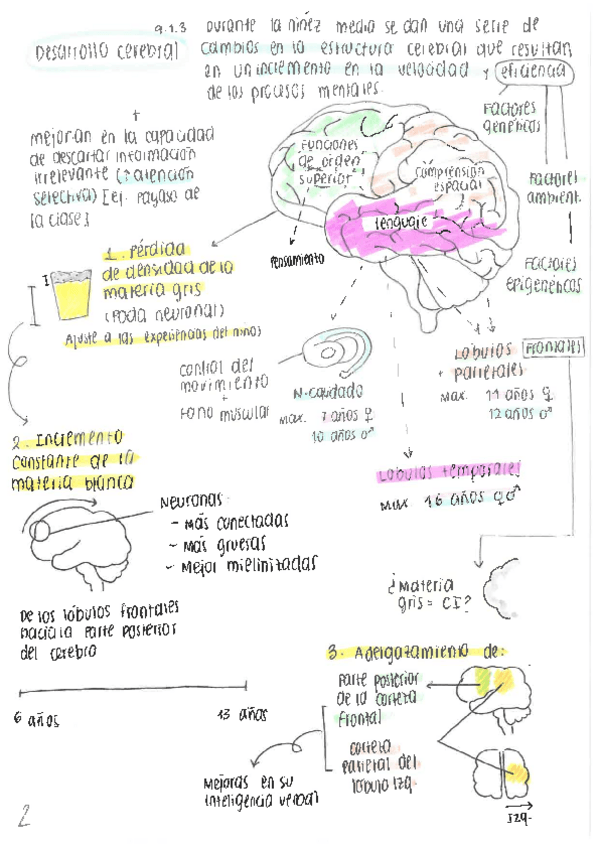 9.1.3 Durante la niñez media se dan una serie de
Desarrollo cerebral cambios en la estructura cerebral que resultan
en un incremento en la velocidad y eficiencia
de los procesos mentales.
+
mejoran en la capacidad
de descartar información
irrelevante (↑ atención
selectiva) [ej. payaso de
la clase]
Factores
genéticos
Factores
ambient.
Factores
epigenéticos
Funciones
de orden
superior
Comprensión
espacial
lenguaje
Pensamiento
1. Pérdida
de densidad de la
materia gris
(Poda neuronal)
Ajuste a las experiencias del niños
control del
movimiento
+
tono muscular
N. caudado
max. 7 años ♀
10 años ♂
Lóbulos frontales
+ parietales
Max. 11 años ♀
12 años ♂
Lóbulos temporales
Max 16 años ♀♂
2. Incremento
constante de la
materia blanca
Neuronas:
- Más conectadas
- Más gruesas
- Mejor mielinizadas
De los lóbulos frontales
hacia la parte posterior
del cerebro
6 años 13 años
¿Materia
gris = CI?
3. Adelgazamiento de:
Parte posterior
de la corteza
frontal
corteza
parietal del
lóbulo izq.
Mejoras en su
inteligencia verbal
Izq.
2